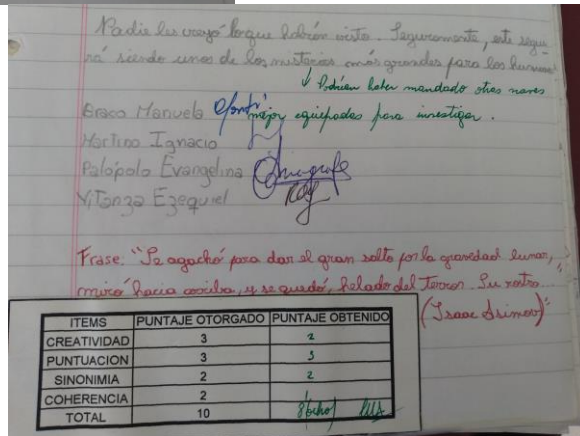 Nadie les creyó lo que habían visto. Seguramente, este segui
rá siendo unos de los misterios más grandes para los humanos
↓ Podrían haber mandado otras naves
mejor equipadas para investigar.
Eraco Manuela
Martino Ignacio
Palópolo Evangelina
Vitanza Ezequiel
Frase: "Se agachó para dar el gran salto por la gravedad lunar,
miró hacia arriba, y se quedó, helado del terror. Su rostro...
(Isaac Asimov)"
ITEMS PUNTAJE OTORGADO PUNTAJE OBTENIDO
CREATIVIDAD 3 2
PUNTUACION 3 3
SINONIMIA 2 2
COHERENCIA 2 1
TOTAL 10 8 (ocho)